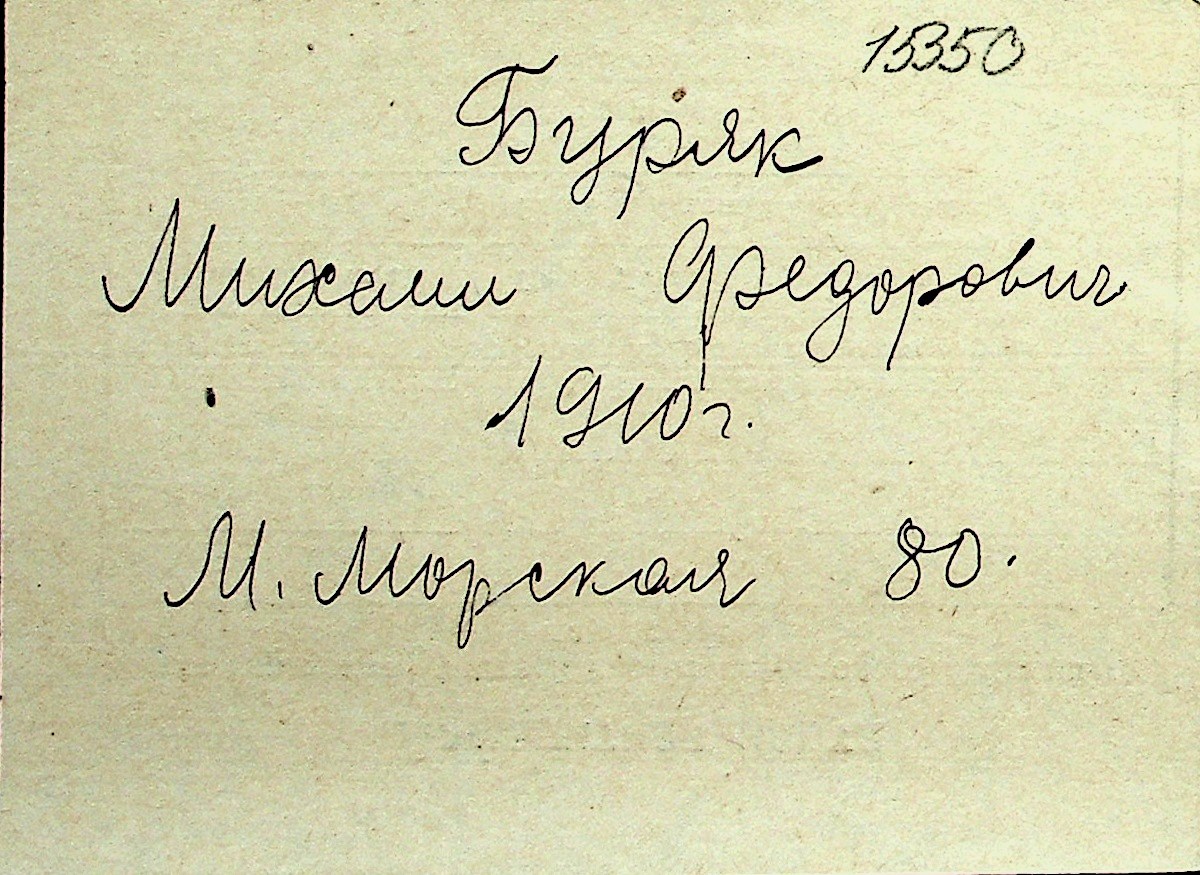 15350
Буряк
Михаил Федорович
1910г.
М. Морская 80.